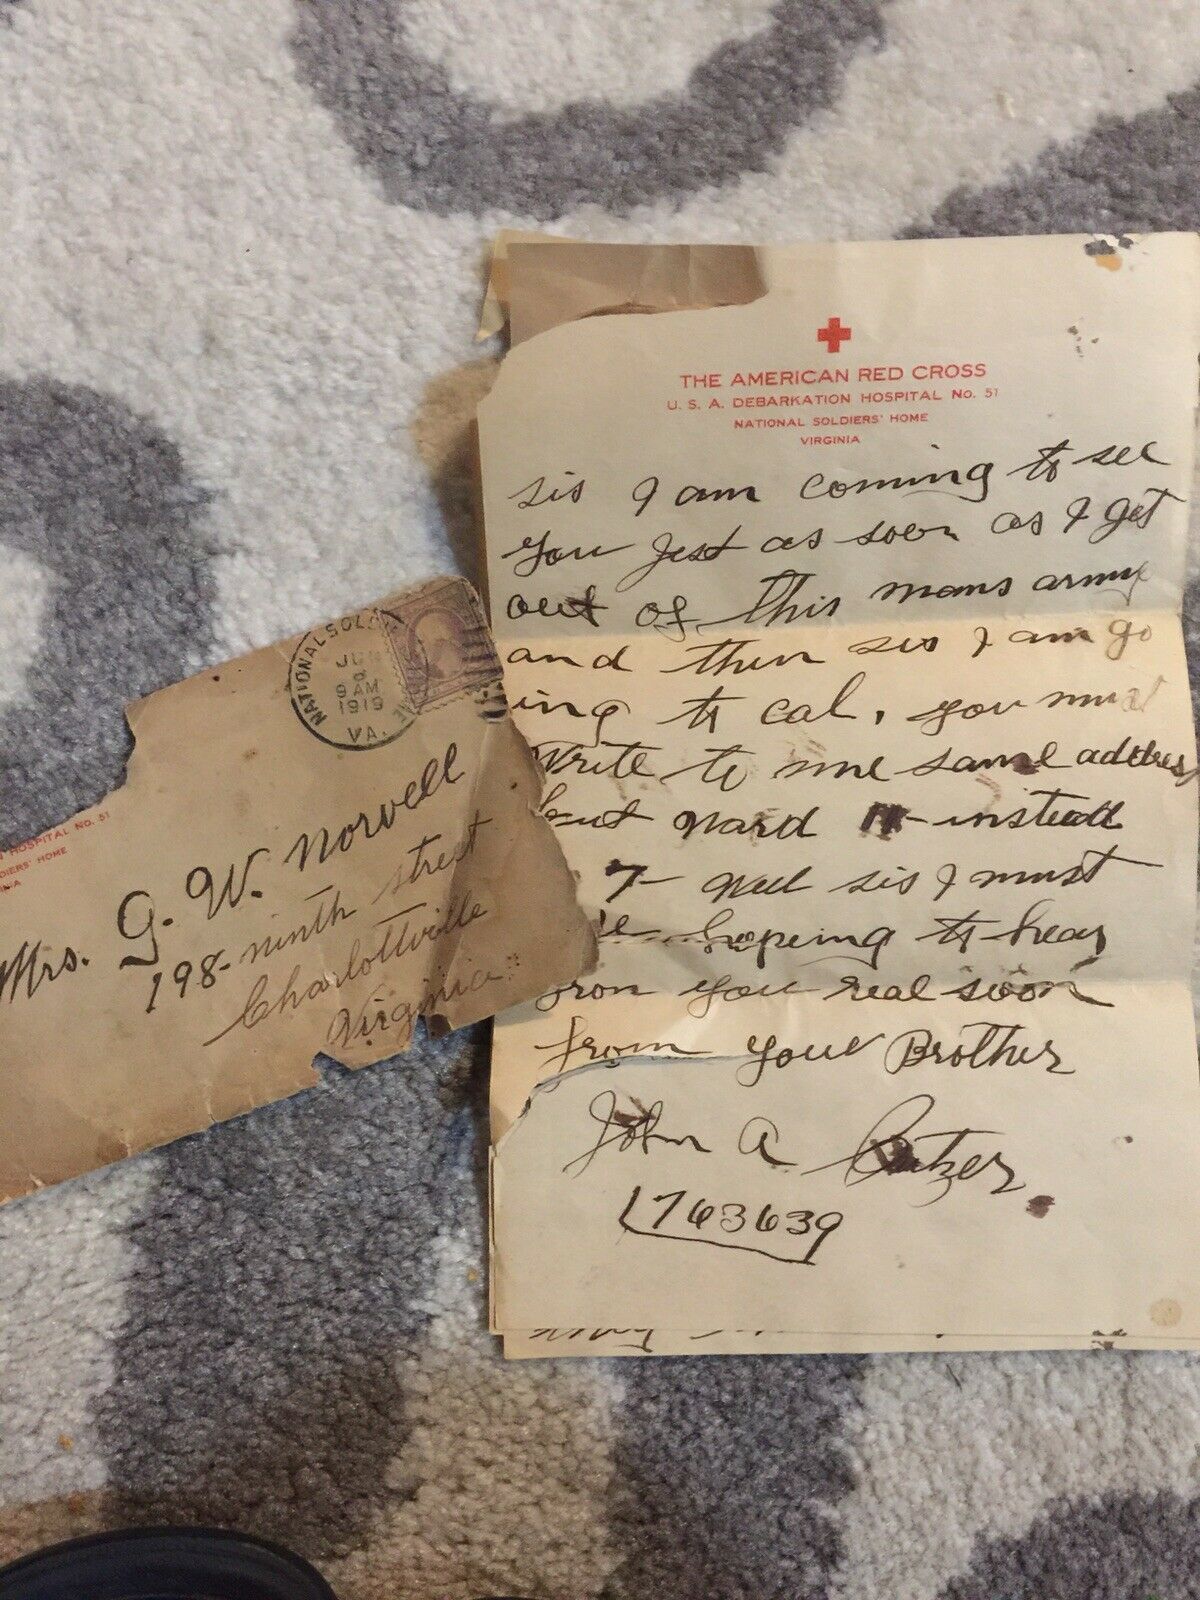 THE AMERICAN RED CROSS
U. S. A. DEBARKATION HOSPITAL NO. 51
NATIONAL SOLDIERS' HOME
VIRGINIA
sis I am coming to see
you jest as soon as I get
out of this mans army
and then sis I am go
ing to cal, you must
Write to me same address
but Ward 11 instead
7- Well sis I must
hopeing to hear
from you real soon
from your Brother
John A
1763639
NATIONAL SOL
JUN
9 AM
1919
VA.
HOSPITAL NO. 51
DIERS' HOME
Mrs. G. W. Norvell
198- ninth street
Charlottville
Virginia